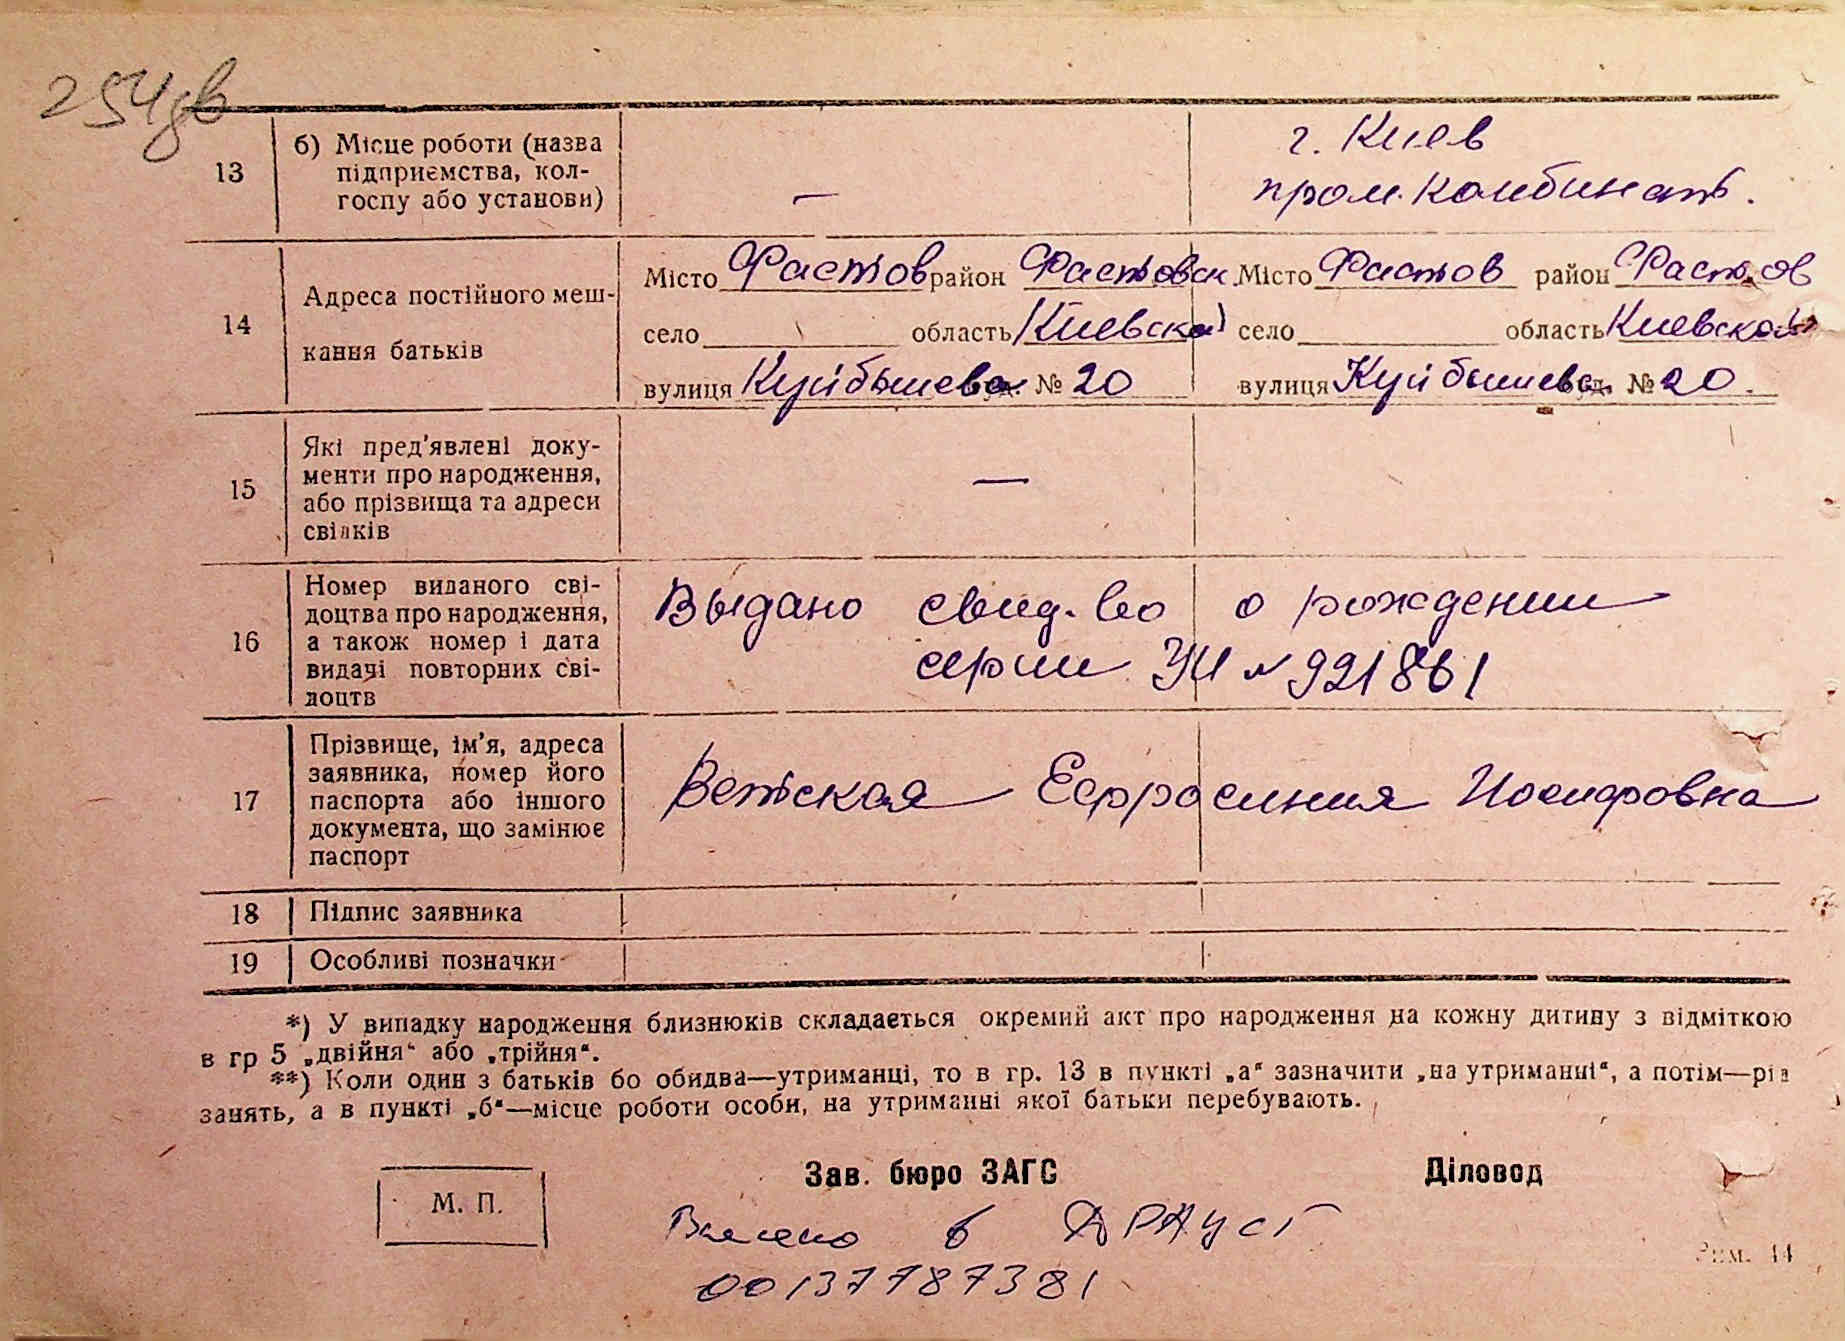 254 дв
13
б) Місце роботи (назва
підприємства, кол-
госпу або установи)
—
г. Киев
пром. комбинатъ.
14
Адреса постійного меш-
кання батьків
Місто Фастов район Фастовск.
село область Киевская
вулиця Куйбышева буд. № 20
Місто Фастов район Фастов
село область Киевская
вулиця Куйбышева буд. № 20.
15
Які пред'явлені доку-
менти про народження,
або прізвища та адреси
свідків
—
16
Номер виданого сві-
доцтва про народження,
а також номер і дата
видачі повторних сві-
доцтв
Выдано свид-во о рождении
серии УИ № 921861
17
Прізвище, ім'я, адреса
заявника, номер його
паспорта або іншого
документа, що замінює
паспорт
Ветская Ефросиния Иосифовна
18 Підпис заявника
19 Особливі позначки
*) У випадку народження близнюків складається окремий акт про народження на кожну дитину з відміткою
в гр 5 „двійня“ або „трійня“.
**) Коли один з батьків бо обидва—утриманці, то в гр. 13 в пункті „а“ зазначити „на утриманні“, а потім—рід
занять, а в пункті „б“—місце роботи особи, на утриманні якої батьки перебувають.
М. П.
Зав. бюро ЗАГС
Діловод
Внесено в ДРАЦСГ
00137787381
Зим. 44